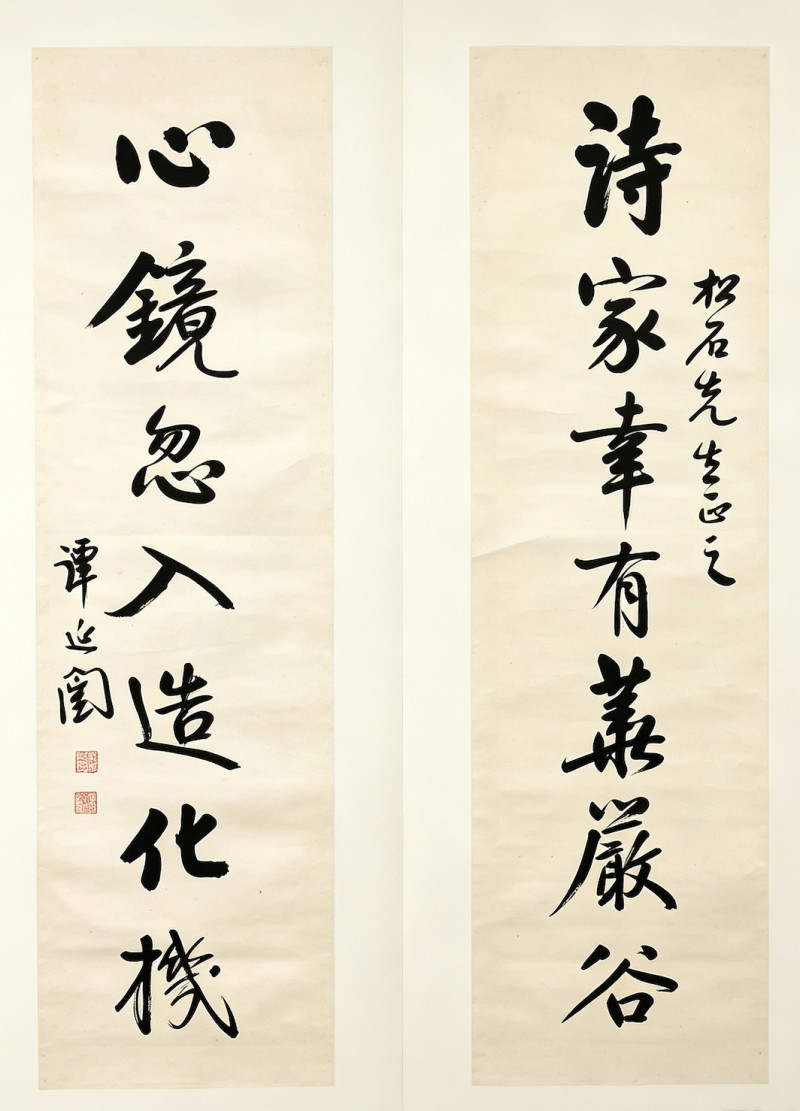 松石先生正之
詩家幸有華嚴谷
心鏡忽入造化機
譚延闓